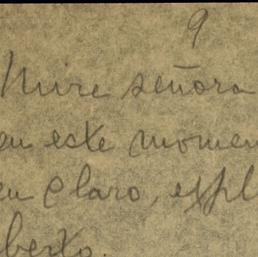 9
Mire señora
en este momen
en claro, expl
berto.